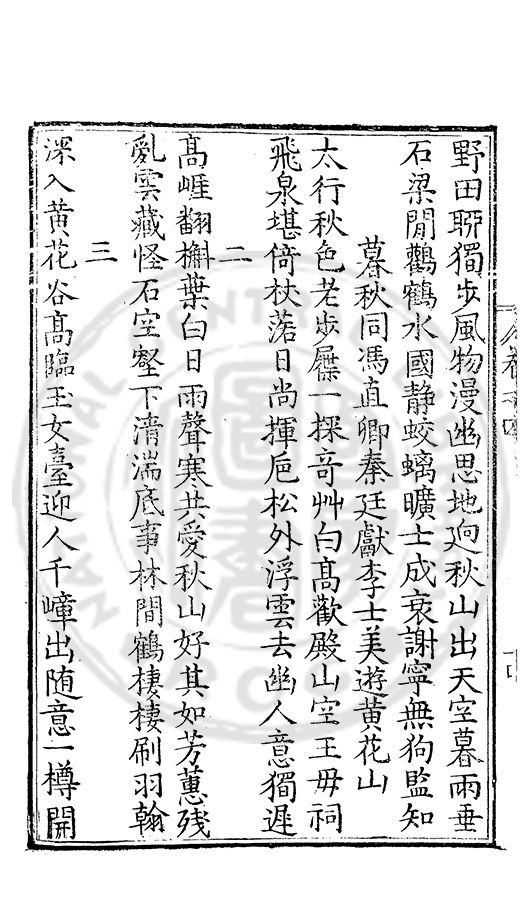 野田聯獨步風物漫幽思地迥秋山出天空暮雨垂
石梁閒鸛鶴水國靜蛟螭曠士成衰謝寧無狗監知
暮秋同馮直卿秦廷獻李士美遊黃花山
太行秋色老步屧一探奇艸白高歡殿山空王毋祠
飛泉堪倚杖落日尚揮巵松外浮雲去幽人意獨遲
二
高崕翻槲葉白日雨聲寒共愛秋山好其如芳蕙残
亂雲藏怪石空壑下清湍底事林間鶴棲棲刷羽翰
三
深入黃花谷高臨玉女臺迎人千嶂出随意一樽開